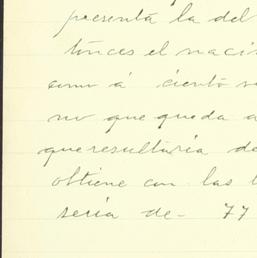 presenta la del
tónces el naci
como á ciento
no que queda a
que resultaria de
obtiene con las
seria de- 77